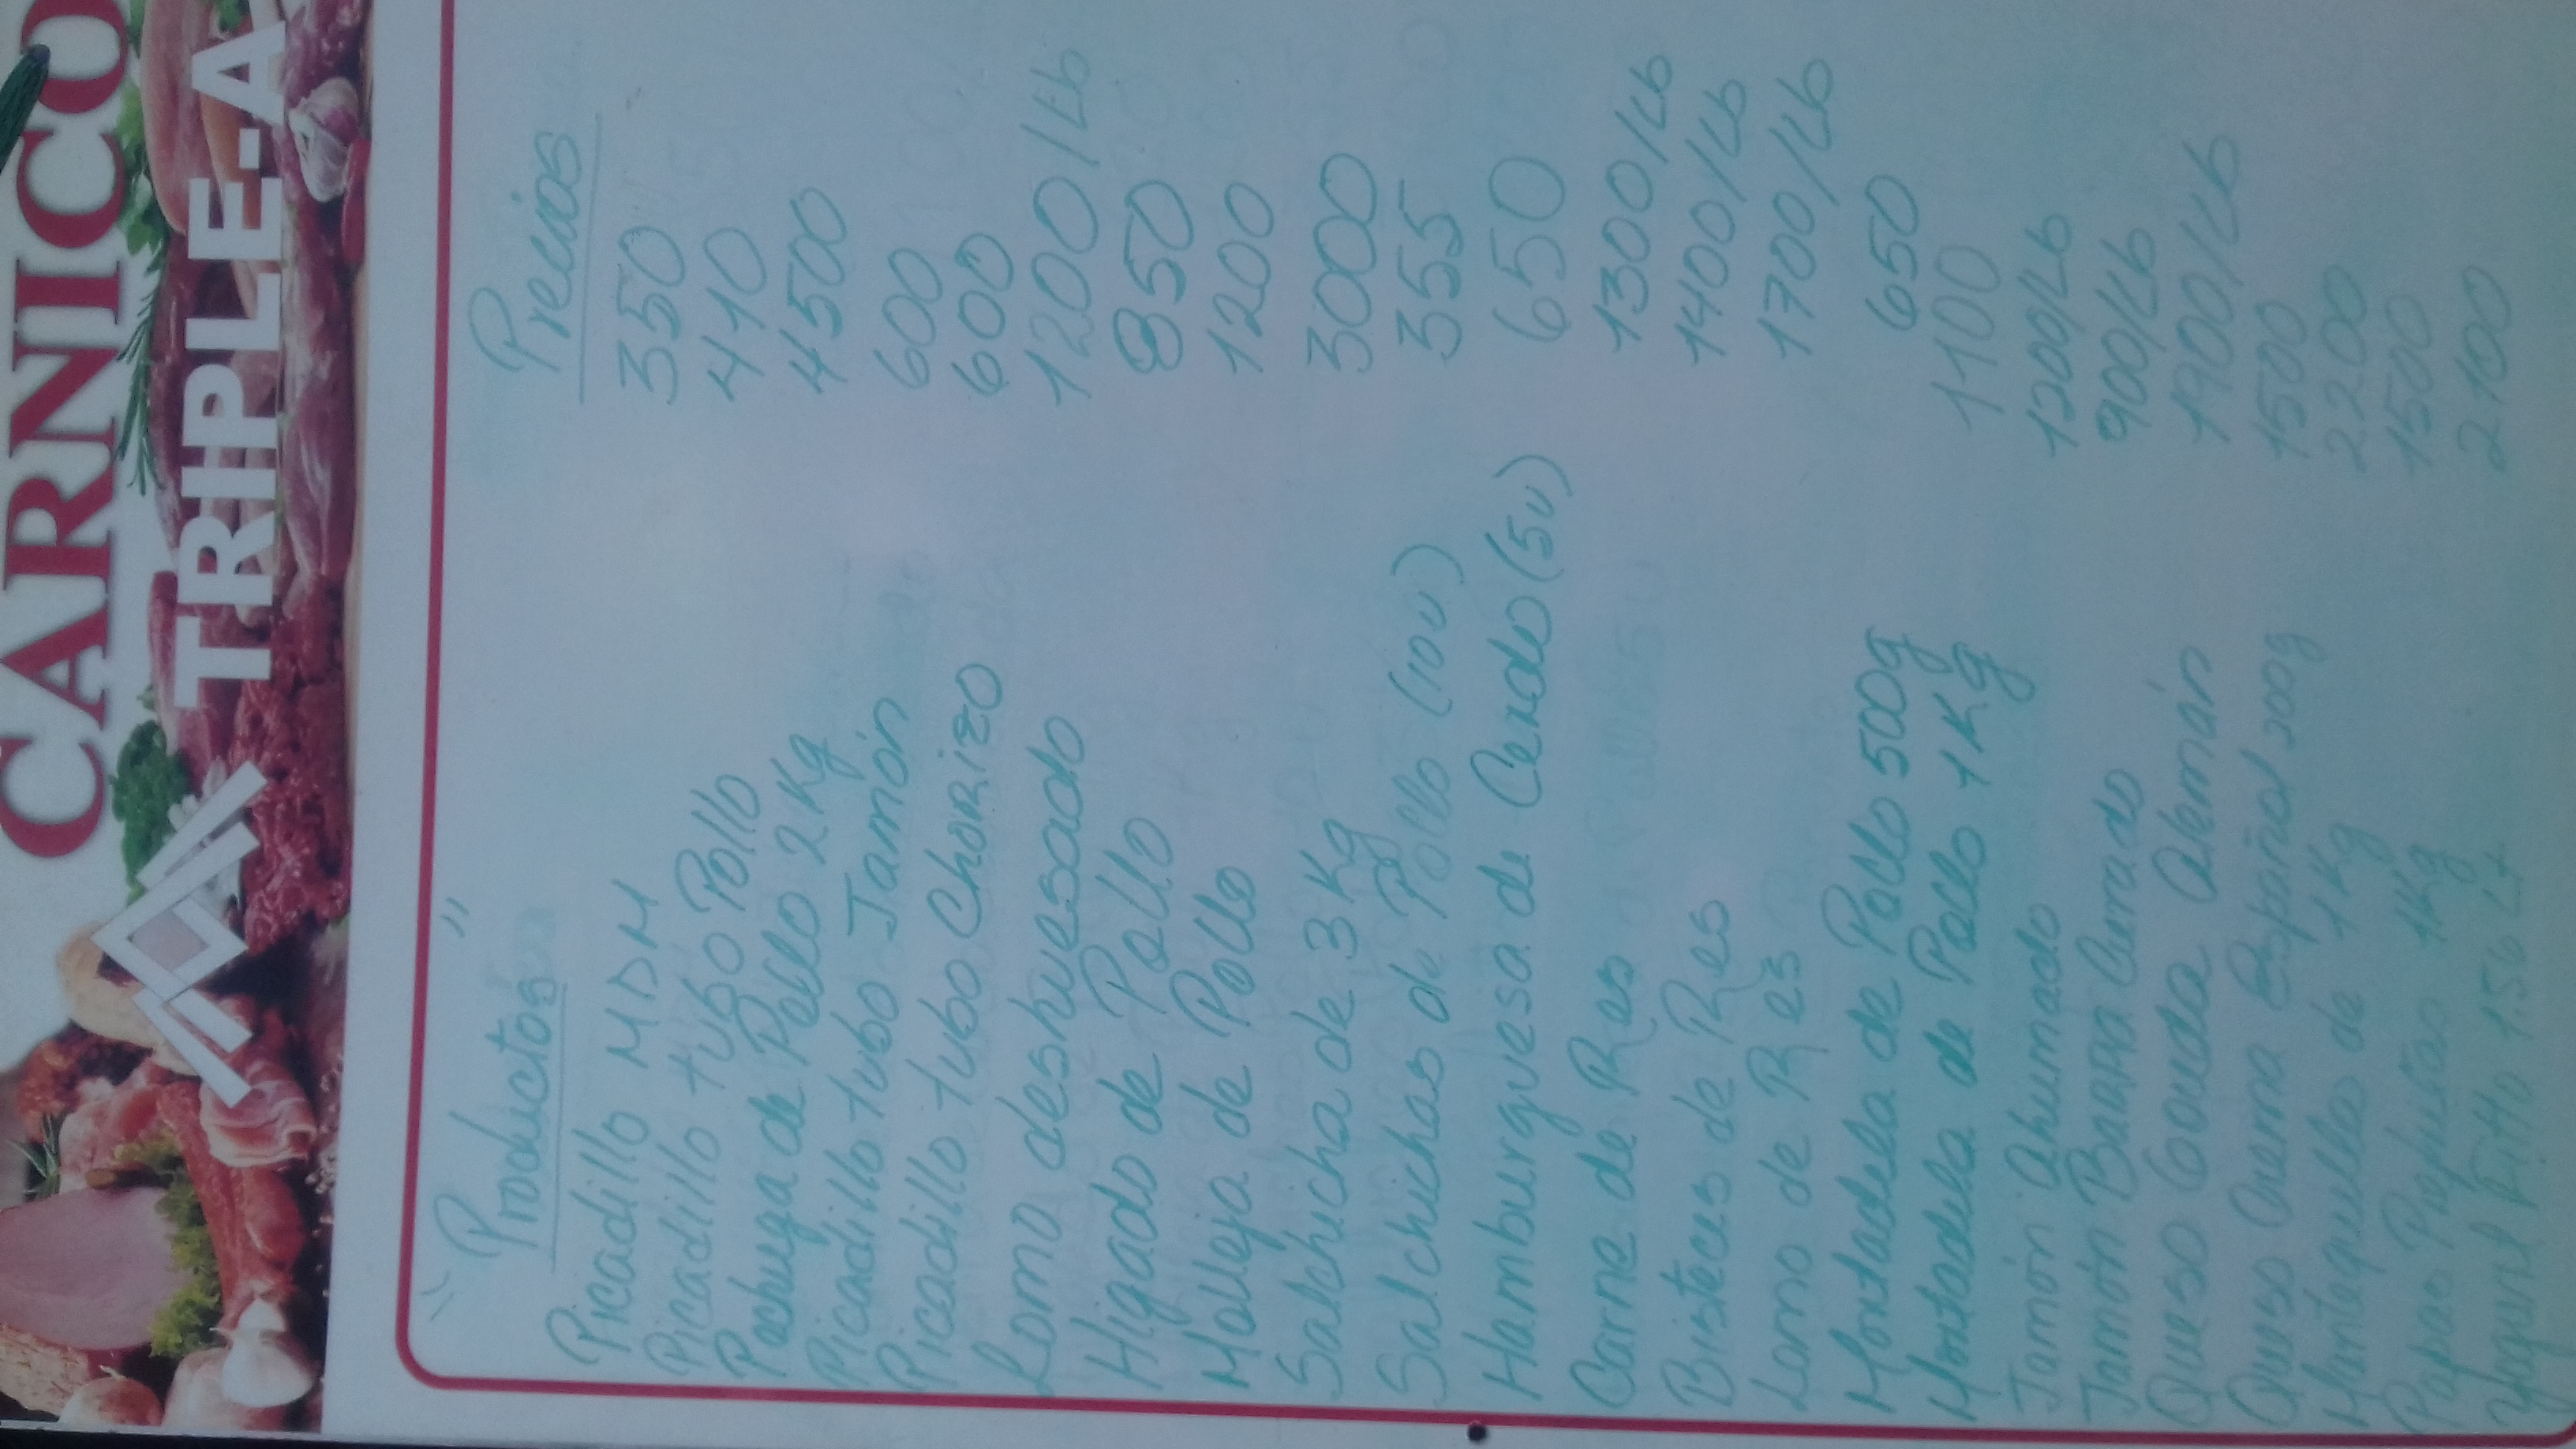 CARNICO
TRIPLE-A
"Productos" Precios
Picadillo MDM 350
Picadillo tubo Pollo 410
Pechuga de Pollo 2Kg 4500
Picadillo tubo Jamón 600
Picadillo tubo Chorizo 600
Lomo deshuesado 1200/Lb
Higado de Pollo 850
Molleja de Pollo 1200
Salchicha de 3Kg 3000
Salchichas de Pollo (10u) 355
Hamburguesa de Cerdo (5u) 650
Carne de Res 1300/Lb
Bisteces de Res 1400/Lb
Lomo de Res 1700/Lb
Mortadela de Pollo 500g 650
Mortadela de Pollo 1Kg 1100
Jamón Ahumado 1200/Lb
Jamón Barra Curado 900/Lb
Queso Gouda Alemán 1900/Lb
Queso Crema Español 200g 1500
Mantequilla de 1Kg 2200
Papas Prefritas 1Kg 1500
Yogurt 1.5 Lt 2100